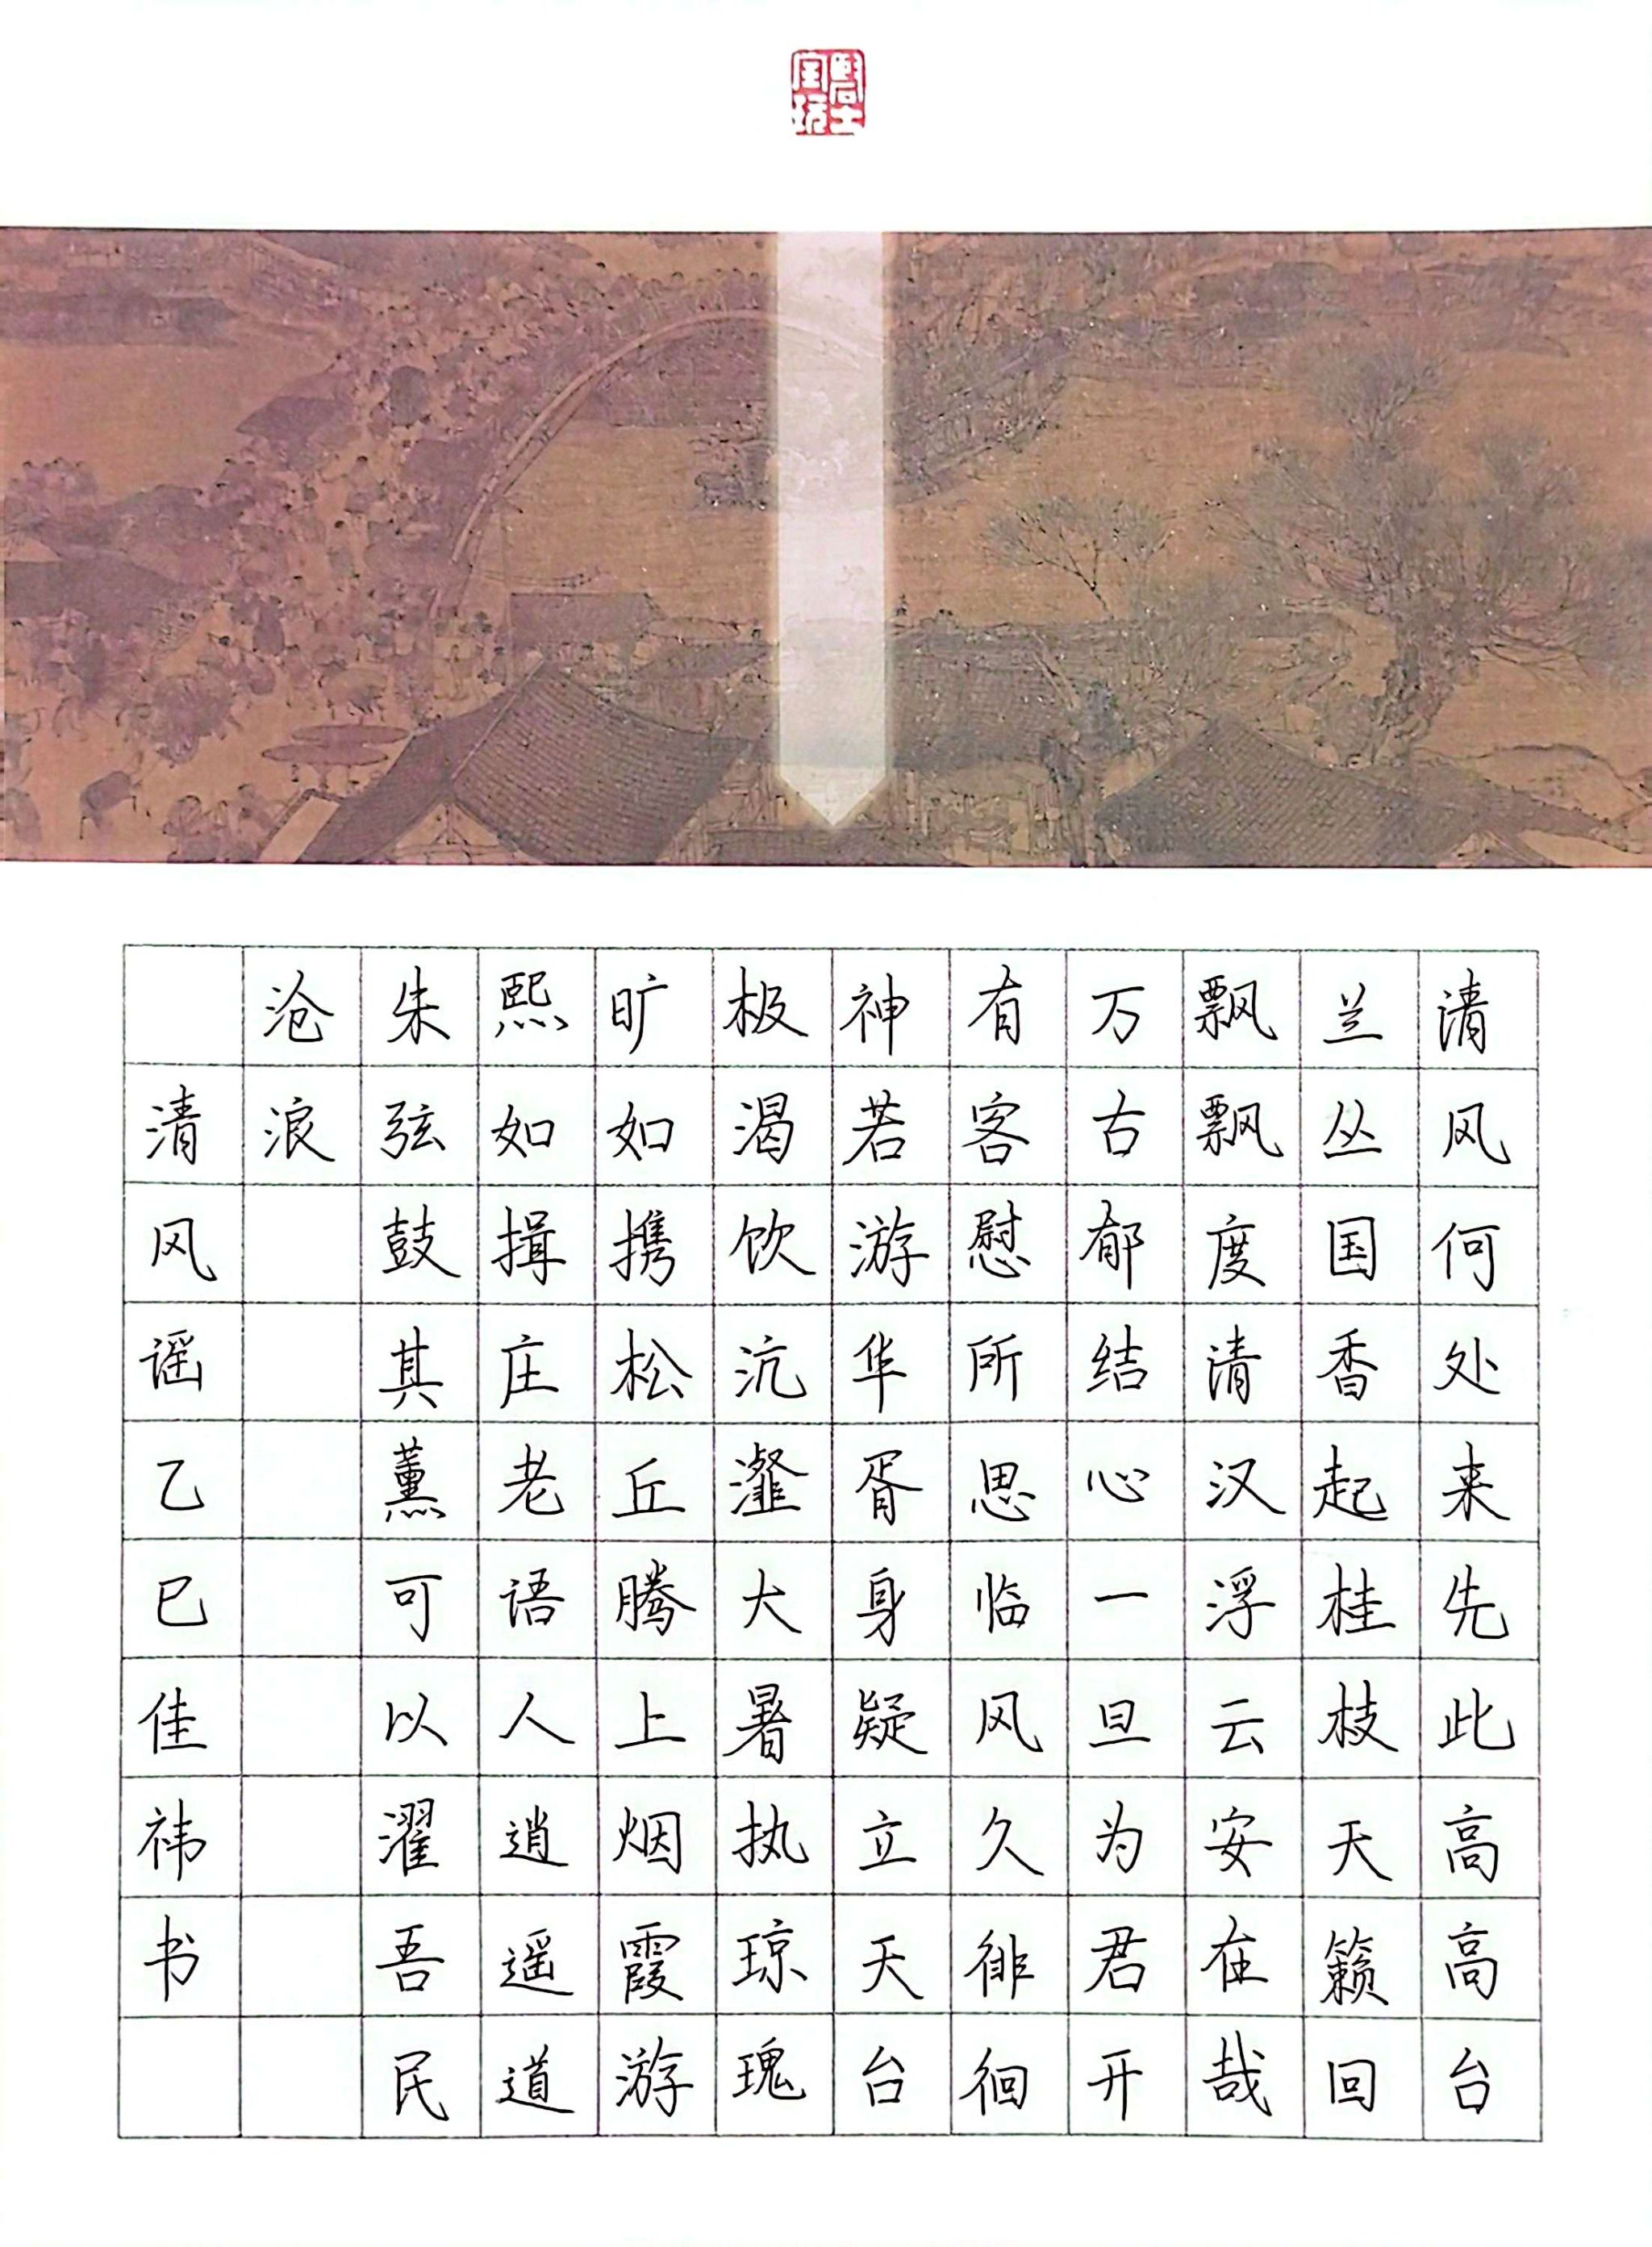 清风何处来先此高高台
兰丛国香起桂枝天籁回
飘飘度清汉浮云安在哉
万古郁结心一旦为君开
有客慰所思临风久徘徊
神若游华胥身疑立天台
极渴饮沆瀣大暑执琼瑰
旷如携松丘腾上烟霞游
熙如揖庄老语人逍遥道
朱弦鼓其薰可以濯吾民
沧浪
清风谣乙巳佳祎书